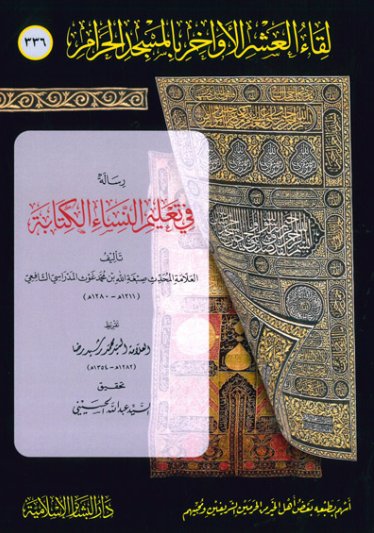 لقاء العشر الأواخر بالمسجد الحرام
٣٣٦
رسالة
في تعليم النساء الكتابة
تأليف
العلامة المحدث صبغة الله بن محمد غوث المدراسي الشافعي
(١٢١١هـ - ١٢٨٠هـ)
تقريظ
العلامة السيد محمد رشيد رضا
(١٢٨٢هـ - ١٣٥٤هـ)
تحقيق
السيد عبد الله الحسيني
أسهم بطبعه بعض أهل الخير من الحرمين الشريفين ومحبيهم
دار البشائر الإسلامية